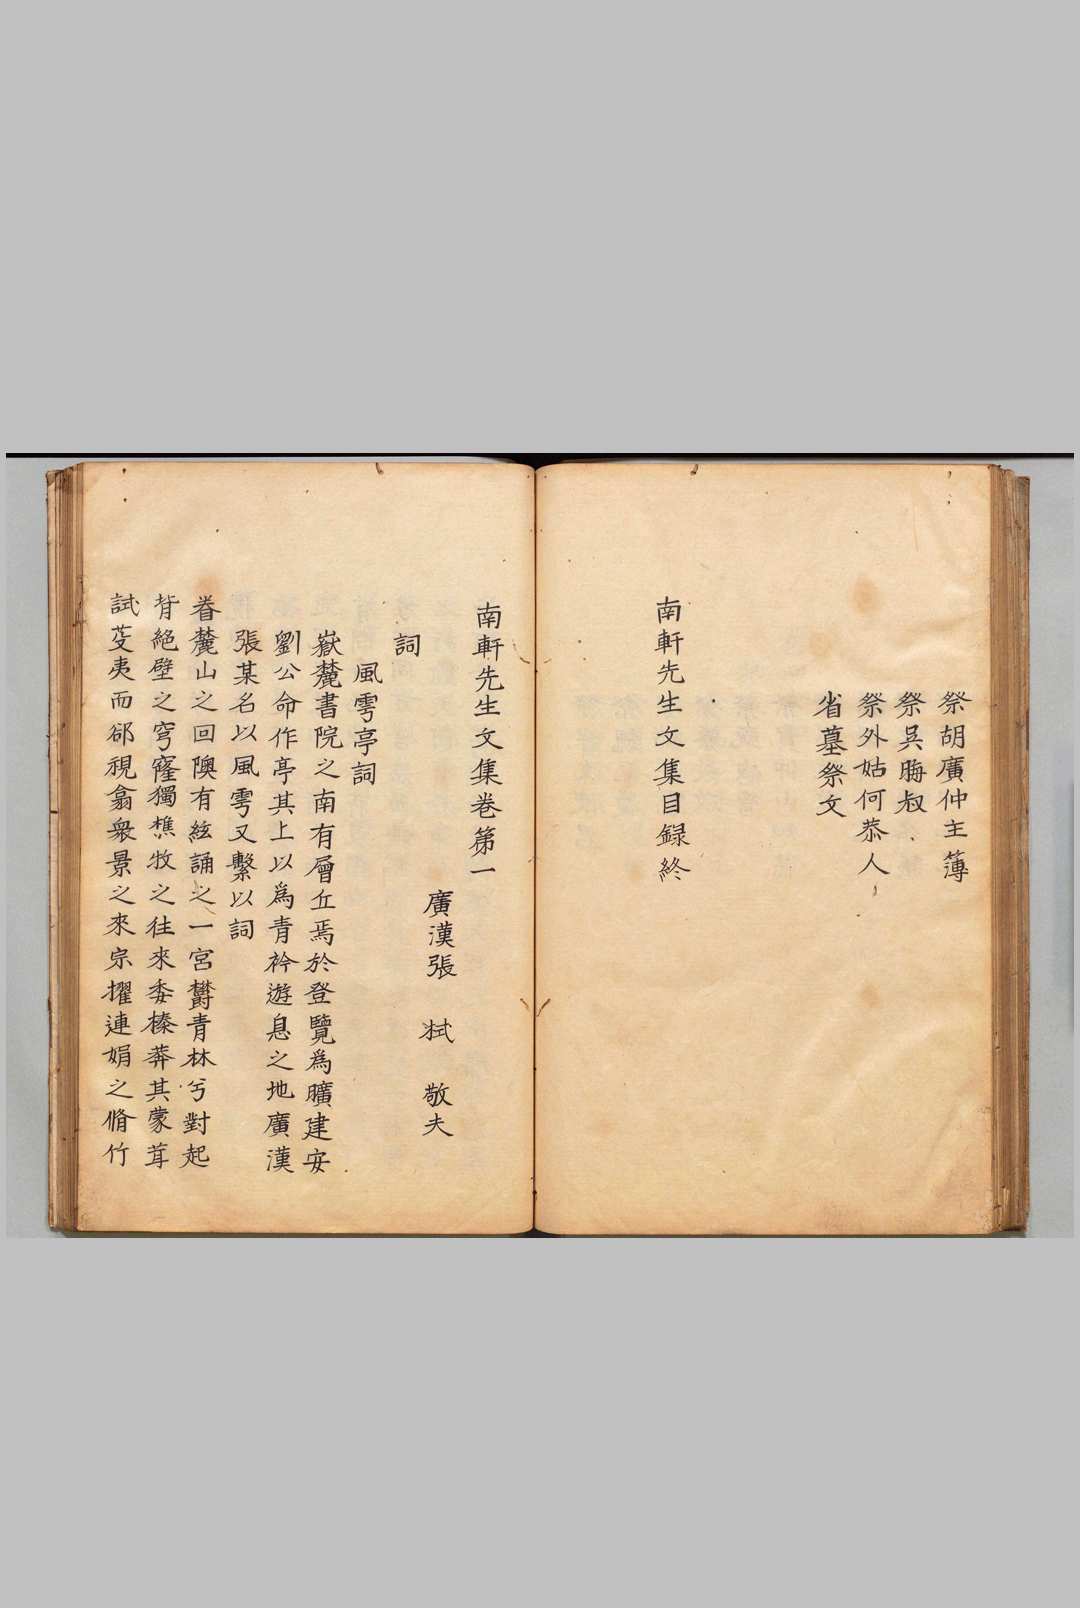 祭胡廣仲主簿
祭吳晦叔
祭外姑何恭人
省墓祭文
南軒先生文集目録終
南軒先生文集卷第一
廣漢張 栻 敬夫
詞
風雩亭詞
嶽麓書院之南有層丘焉於登覽爲曠建安
劉公命作亭其上以爲青衿遊息之地廣漢
張某名以風雩又繫以詞
眷麓山之回隩有絃誦之一宮欝青林兮對起
背絕壁之穹窿獨樵牧之往來委榛莽其蒙茸
試芟夷而郤視翕衆景之來宗擢連娟之脩竹